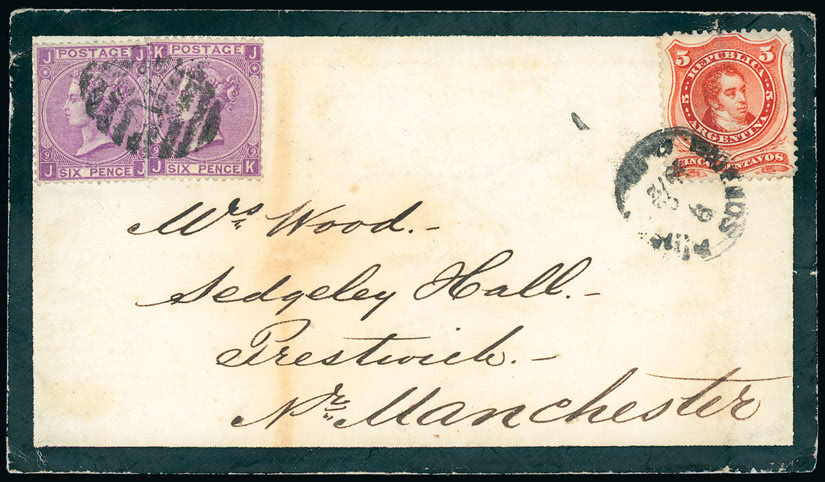 J POSTAGE J
9 9
J SIX PENCE J
K POSTAGE J
9 9
J SIX PENCE K
5 5
REPUBLICA
5 5
ARGENTINA
CINCO CENTAVOS
Mrs Wood.-
Sedgeley Hall.-
Prestwich.-
Nr. Manchester